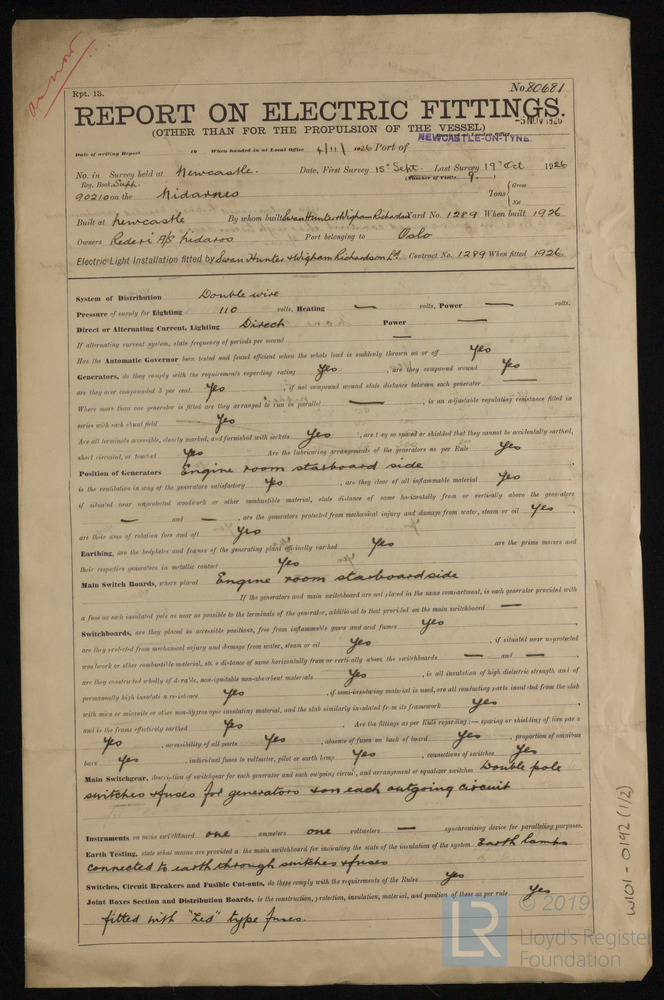 an now
Rpt. 13.
No. 80681
REPORT ON ELECTRIC FITTINGS.
(OTHER THAN FOR THE PROPULSION OF THE VESSEL)
-5 NOV 1926
NEWCASTLE-ON-TYNE
Date of writing Report 19 When handed in at Local Office 4/11/ 1926 Port of
No. in Survey held at Newcastle. Date, First Survey 15th Sept. Last Survey 19th Oct 1926
Reg. Book. Supp. (Number of Visits 9.)
90210 on the Nidarnes Tons { Gross Net
Built at Newcastle By whom built Swan Hunter & Wigham Richardson Yard No. 1289 When built 1926
Owners Rederi A/S Nidaros Port belonging to Oslo
Electric Light Installation fitted by Swan Hunter & Wigham Richardson Ld. Contract No. 1289 When fitted 1926.
System of Distribution Double wire
Pressure of supply for Lighting 110 volts, Heating — volts, Power — volts.
Direct or Alternating Current, Lighting Direct Power —
If alternating current system, state frequency of periods per second —
Has the Automatic Governor been tested and found efficient when the whole load is suddenly thrown on or off Yes
Generators, do they comply with the requirements regarding rating Yes, are they compound wound Yes
are they over compounded 5 per cent. Yes, if not compound wound state distance between each generator —
Where more than one generator is fitted are they arranged to run in parallel —, is an adjustable regulating resistance fitted in
series with each shunt field Yes
Are all terminals accessible, clearly marked, and furnished with sockets Yes, are they so spaced or shielded that they cannot be accidentally earthed,
short circuited, or touched Yes Are the lubricating arrangements of the generators as per Rule Yes
Position of Generators Engine room starboard side
is the ventilation in way of the generators satisfactory Yes, are they clear of all inflammable material Yes
if situated near unprotected woodwork or other combustible material, state distance of same horizontally from or vertically above the generators
— and —, are the generators protected from mechanical injury and damage from water, steam or oil Yes,
are their axes of rotation fore and aft Yes
Earthing, are the bedplates and frames of the generating plant efficiently earthed Yes are the prime movers and
their respective generators in metallic contact Yes
Main Switch Boards, where placed Engine room starboard side
If the generators and main switchboard are not placed in the same compartment, is each generator provided with
a fuse on each insulated pole as near as possible to the terminals of the generator, additional to that provided on the main switchboard —
Switchboards, are they placed in accessible positions, free from inflammable gases and acid fumes Yes,
are they protected from mechanical injury and damage from water, steam or oil Yes, if situated near unprotected
woodwork or other combustible material, state distance of same horizontally from or vertically above the switchboards — and —,
are they constructed wholly of durable, non-ignitable non-absorbent materials Yes, is all insulation of high dielectric strength and of
permanently high insulation resistance Yes, if semi-insulating material is used, are all conducting parts insulated from the slab
with mica or micanite or other non-hygroscopic insulating material, and the slab similarly insulated from its framework Yes,
and is the frame effectively earthed Yes. Are the fittings as per Rule regarding:— spacing or shielding of live parts
Yes, accessibility of all parts Yes, absence of fuses on back of board Yes, proportion of omnibus
bars Yes, individual fuses to voltmeter, pilot or earth lamp Yes, connections of switches Yes
Main Switchgear, description of switchgear for each generator and each outgoing circuit, and arrangement of equalizer switches Double pole
switches & fuses for generators & on each outgoing circuit
Instruments on main switchboard one ammeters one voltmeters — synchronising device for paralleling purposes.
Earth Testing, state what means are provided at the main switchboard for indicating the state of the insulation of the system Earth lamps
connected to earth through switches & fuses
Switches, Circuit Breakers and Fusible Cut-outs, do these comply with the requirements of the Rules Yes
Joint Boxes Section and Distribution Boards, is the construction, protection, insulation, material, and position of these as per rule Yes
fitted with "Zed" type fuses.
W101-0192 (1/2)
LR © 2019
Lloyd's Register
Foundation